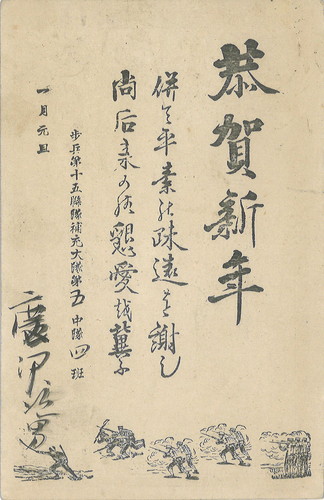 恭賀新年
併て平素の疎遠を謝し
尚后来の倍懇愛を冀ふ
一月元旦
步兵第十五聯隊補充大隊第五中隊四班